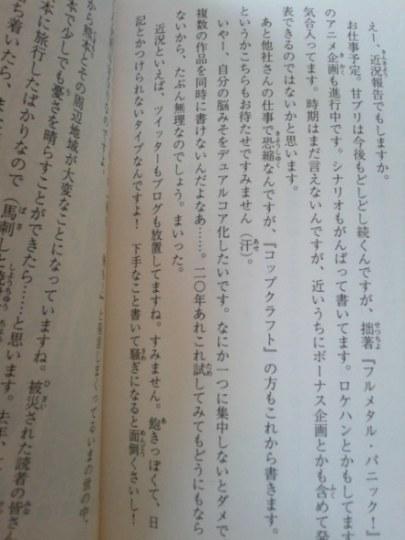 えー、近況報告でもしますか。
お仕事予定。甘ブリは今後もどしどし続くんですが、拙著『フルメタル・パニック！』
のアニメ企画も進行中です。シナリオもがんばって書いてます。ロケハンとかもしてます
気合入ってます。時期はまだ言えないんですが、近いうちにボーナス企画とかも含めて発
表できるのではないかと思います。
あと他社さんの仕事で恐縮なんですが、『コップクラフト』の方もこれから書きます。
というかこちらもお待たせですみません（汗）。
いやー、自分の脳みそをデュアルコア化したいです。なにか一つに集中しないとダメで
複数の作品を同時に書けないんだよなあ……。二〇年あれこれ試してみてもどうにもなら
ないから、たぶん無理なのでしょう。まいった。
近況といえば、ツイッターもブログも放置してますね。すみません。飽きっぽくて、日
記とかつけられないタイプなんですよ！　下手なこと書いて騒ぎになると面倒くさいし！
から熊本とその周辺地域が大変なことになっていますね。被災された読者の皆さん
本で少しでも憂さを晴らすことができたら……と思います。去年、
本に旅行したばかりなので
ち着いたら、ま
（馬刺しと